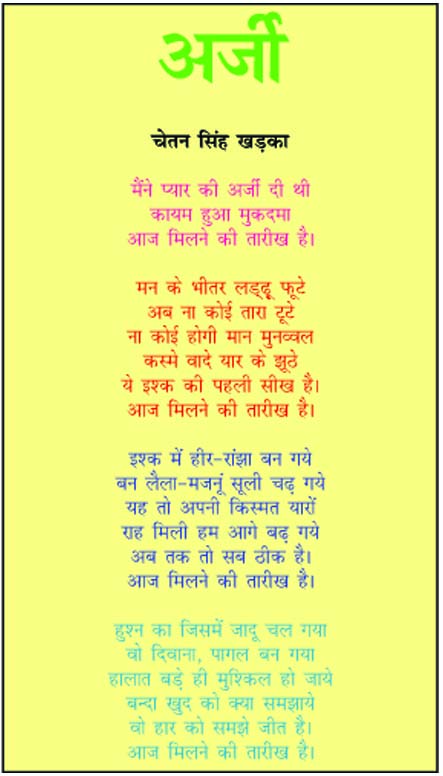 अर्जी
चेतन सिंह खड़का
मैंने प्यार की अर्जी दी थी
कायम हुआ मुकदमा
आज मिलने की तारीख है।
मन के भीतर लड्ढू फूटे
अब ना कोई तारा टूटे
ना कोई होगी मान मुनव्वल
कस्मे वादे यार के झूठे
ये इश्क की पहली सीख है।
आज मिलने की तारीख है।
इश्क में हीर-रांझा बन गये
बन लैला-मजनूं सूली चढ़ गये
यह तो अपनी किस्मत यारों
राह मिली हम आगे बढ़ गये
अब तक तो सब ठीक है।
आज मिलने की तारीख है।
हुश्न का जिसमें जादू चल गया
वो दिवाना, पागल बन गया
हालात बड़े ही मुश्किल हो जाये
बन्दा खुद को क्या समझाये
वो हार को समझे जीत है।
आज मिलने की तारीख है।